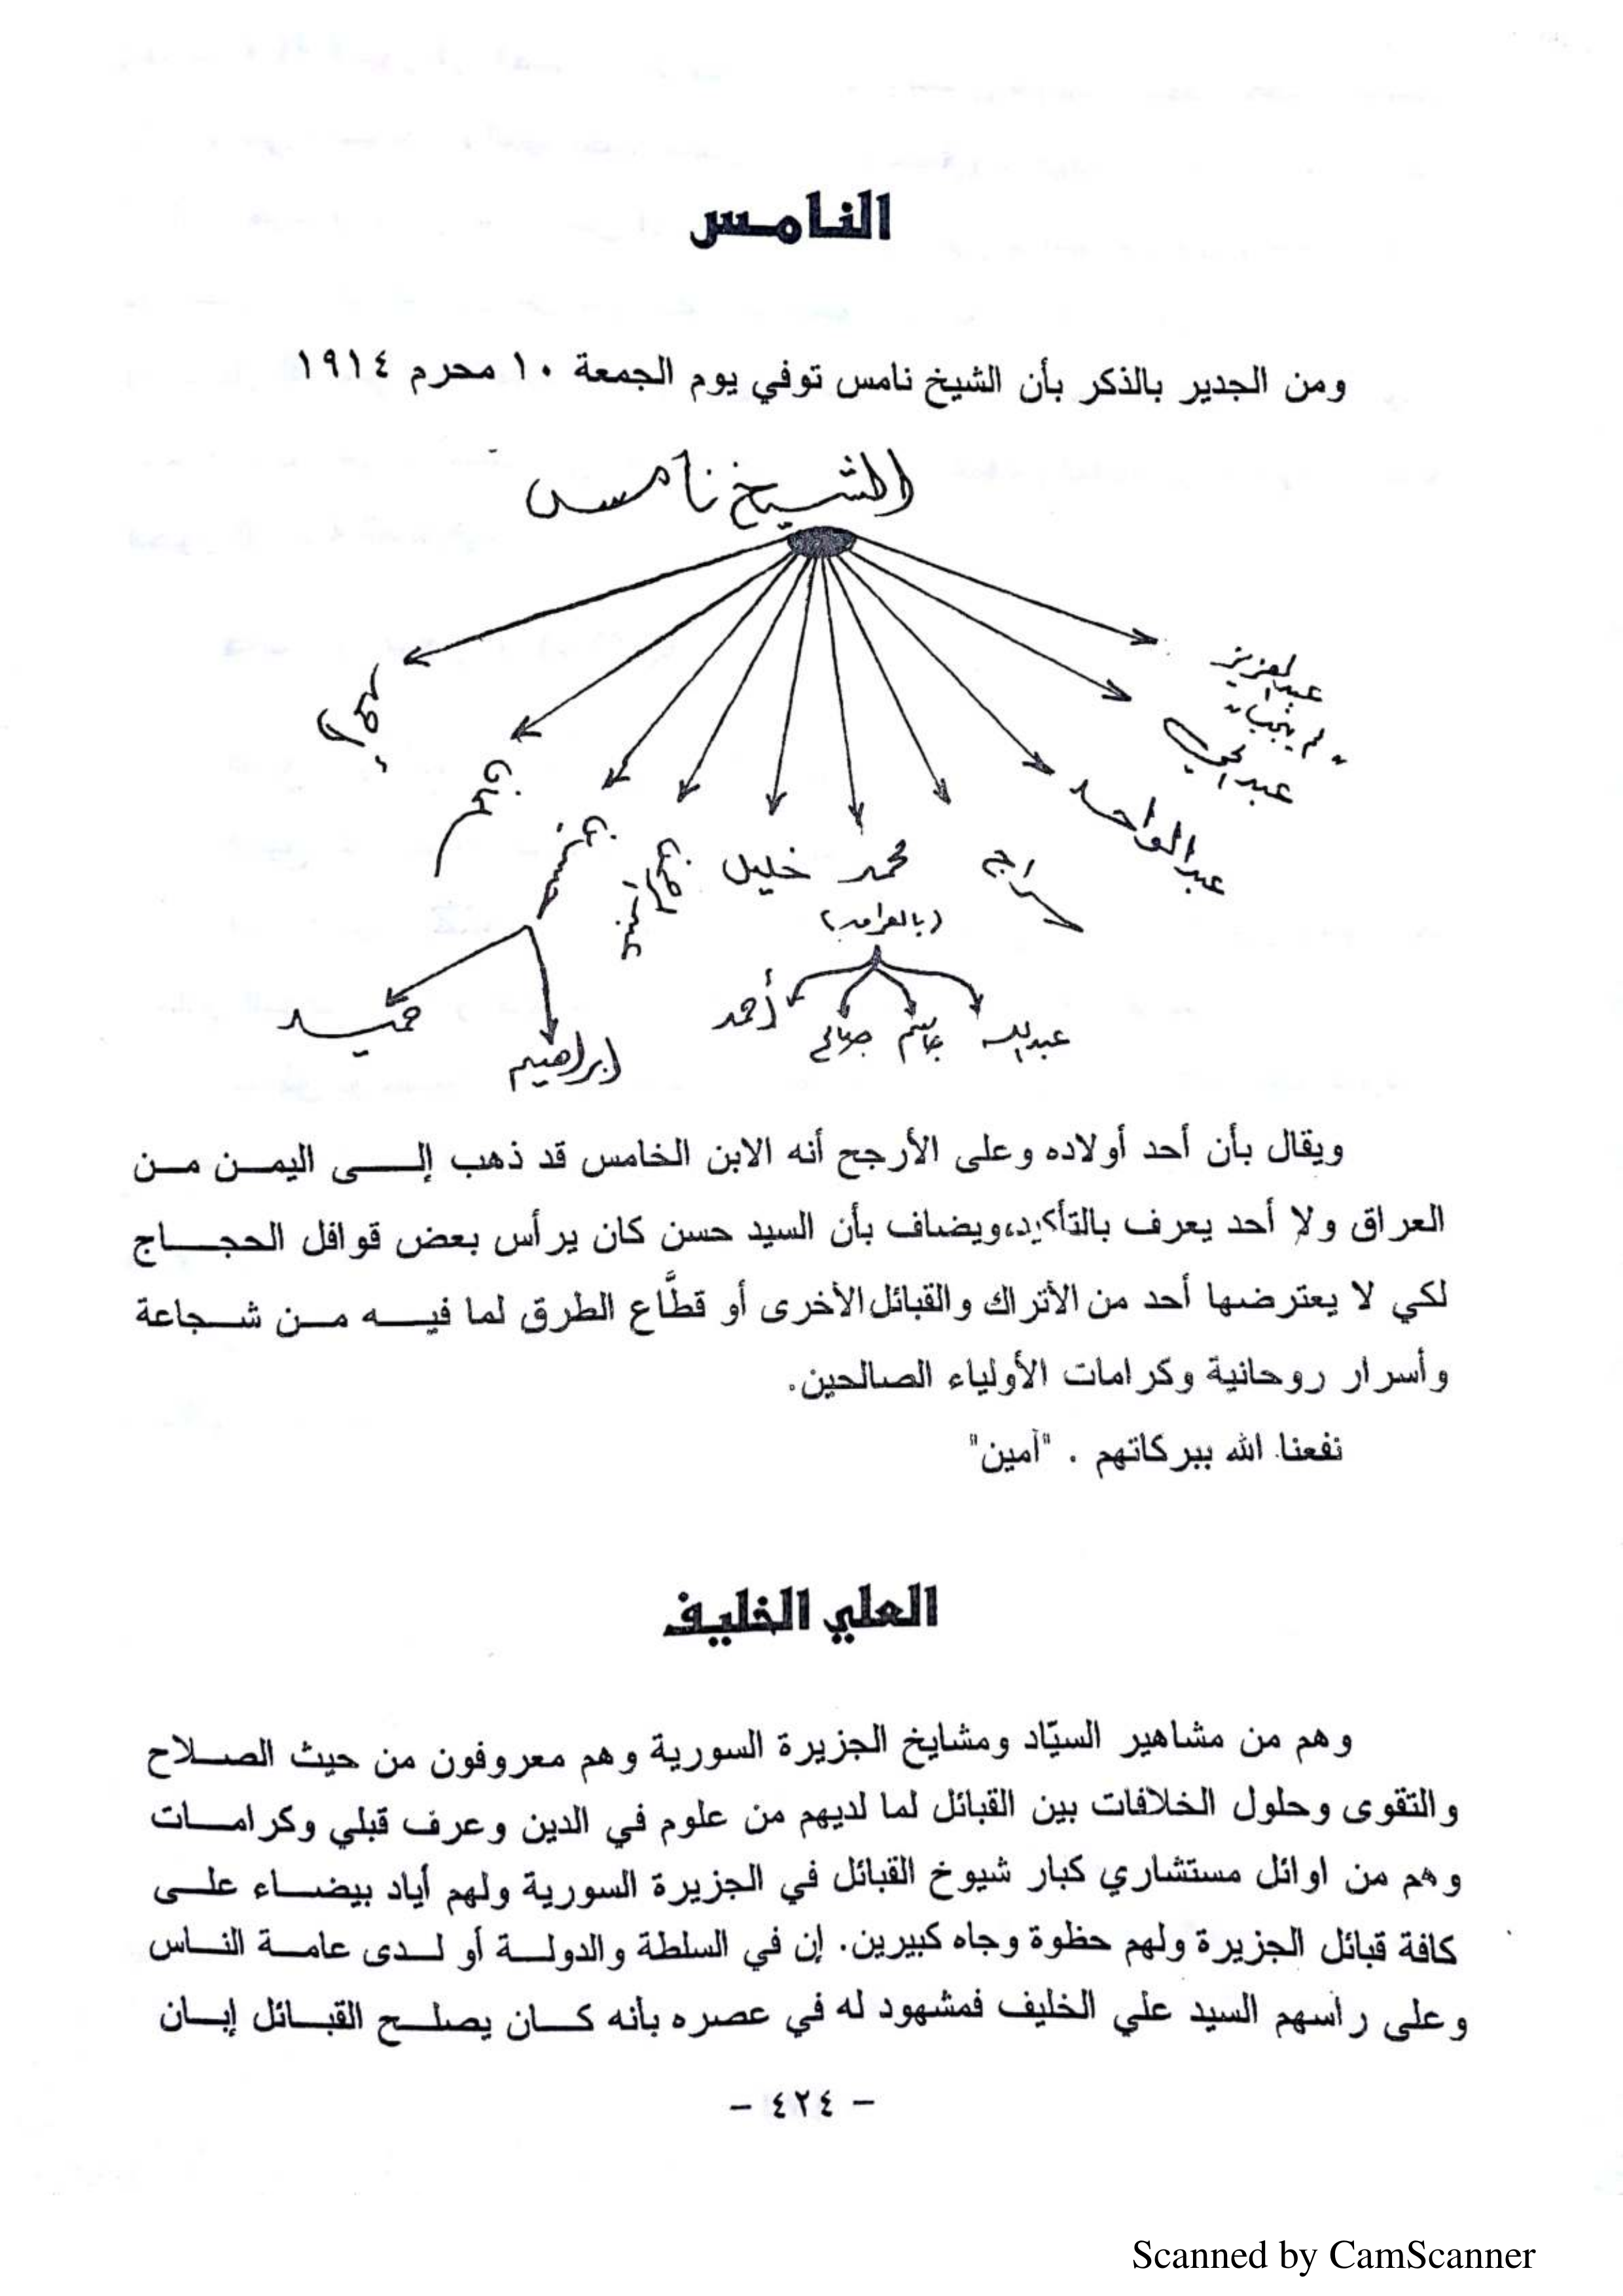 النامس
ومن الجدير بالذكر بأن الشيخ نامس توفي يوم الجمعة ١٠ محرم ١٩١٤
الشيخ نامس
عبدالعزيز
"لم ينجب"
عبدالحي
عبدالواحد
سراج
محمد
(بالعراق)
خليل
عبدالرحمن
حسن
عبدالله
جاسم
صالح
أحمد
ابراهيم
حميد
ويقال بأن أحد أولاده وعلى الأرجح أنه الابن الخامس قد ذهب إلى اليمن من
العراق ولا أحد يعرف بالتأكيد،ويضاف بأن السيد حسن كان يرأس بعض قوافل الحجاج
لكي لا يعترضها أحد من الأتراك والقبائل الأخرى أو قطَّاع الطرق لما فيه من شجاعة
وأسرار روحانية وكرامات الأولياء الصالحين.
نفعنا الله ببركاتهم . "آمين"
العلي الخليف
وهم من مشاهير السيّاد ومشايخ الجزيرة السورية وهم معروفون من حيث الصلاح
والتقوى وحلول الخلافات بين القبائل لما لديهم من علوم في الدين وعرف قبلي وكرامات
وهم من اوائل مستشاري كبار شيوخ القبائل في الجزيرة السورية ولهم أياد بيضاء على
كافة قبائل الجزيرة ولهم حظوة وجاه كبيرين. إن في السلطة والدولة أو لدى عامة الناس
وعلى رأسهم السيد علي الخليف فمشهود له في عصره بأنه كان يصلح القبائل إبان
- ٤٢٤ -
Scanned by CamScanner